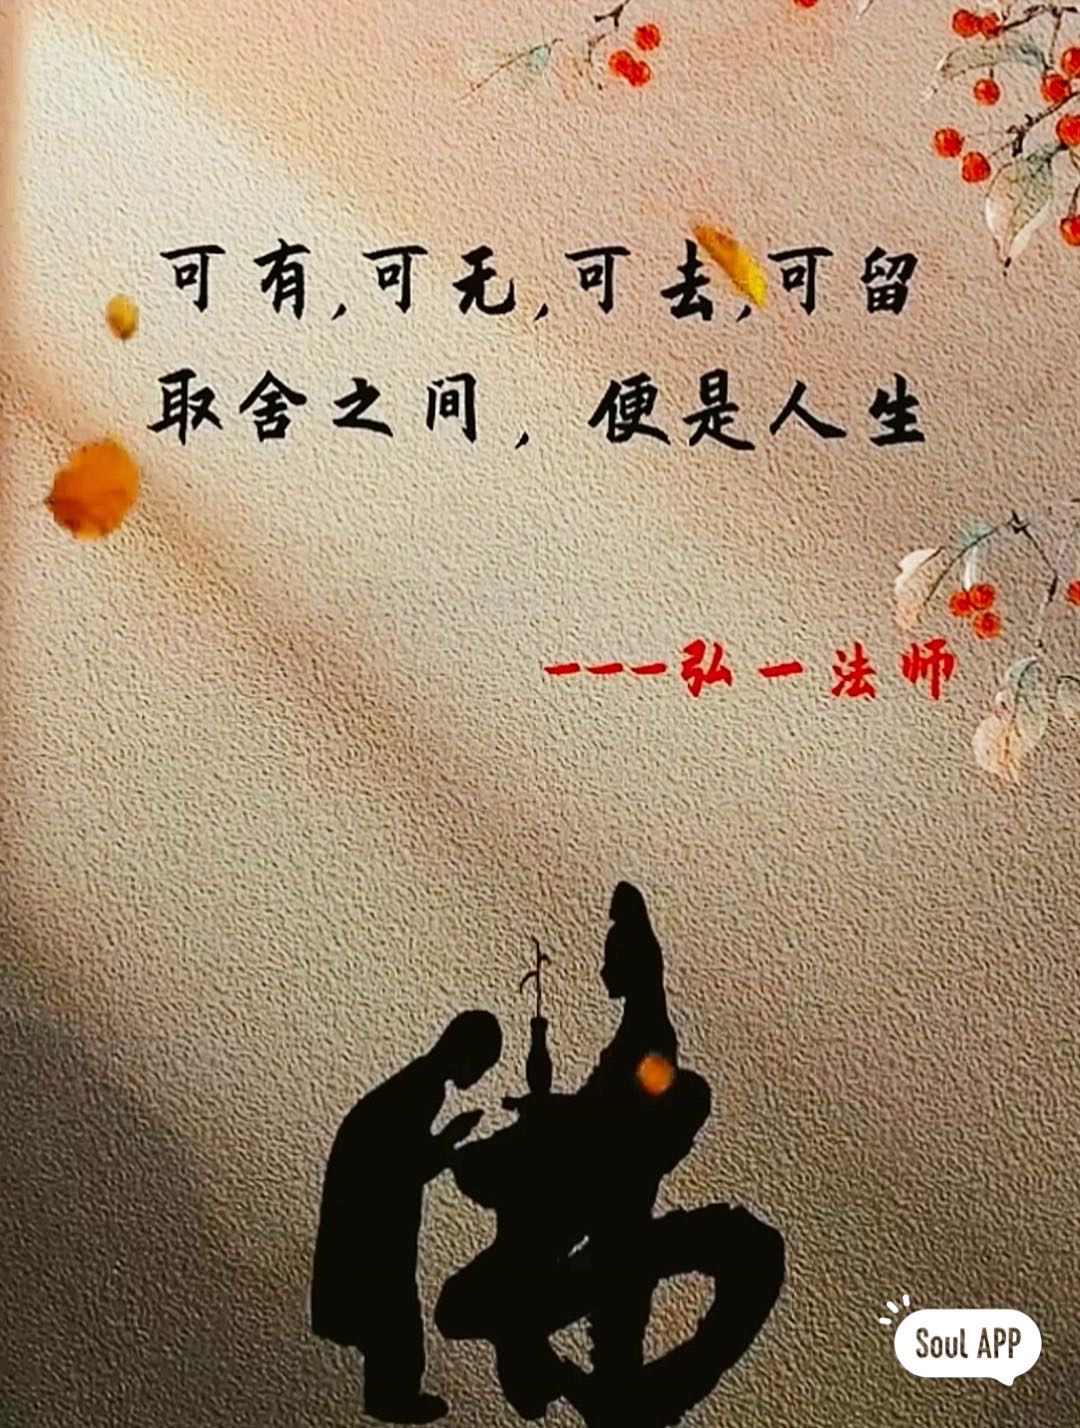 可有,可无,可去,可留
取舍之间，便是人生
---弘一法师
佛
Soul APP